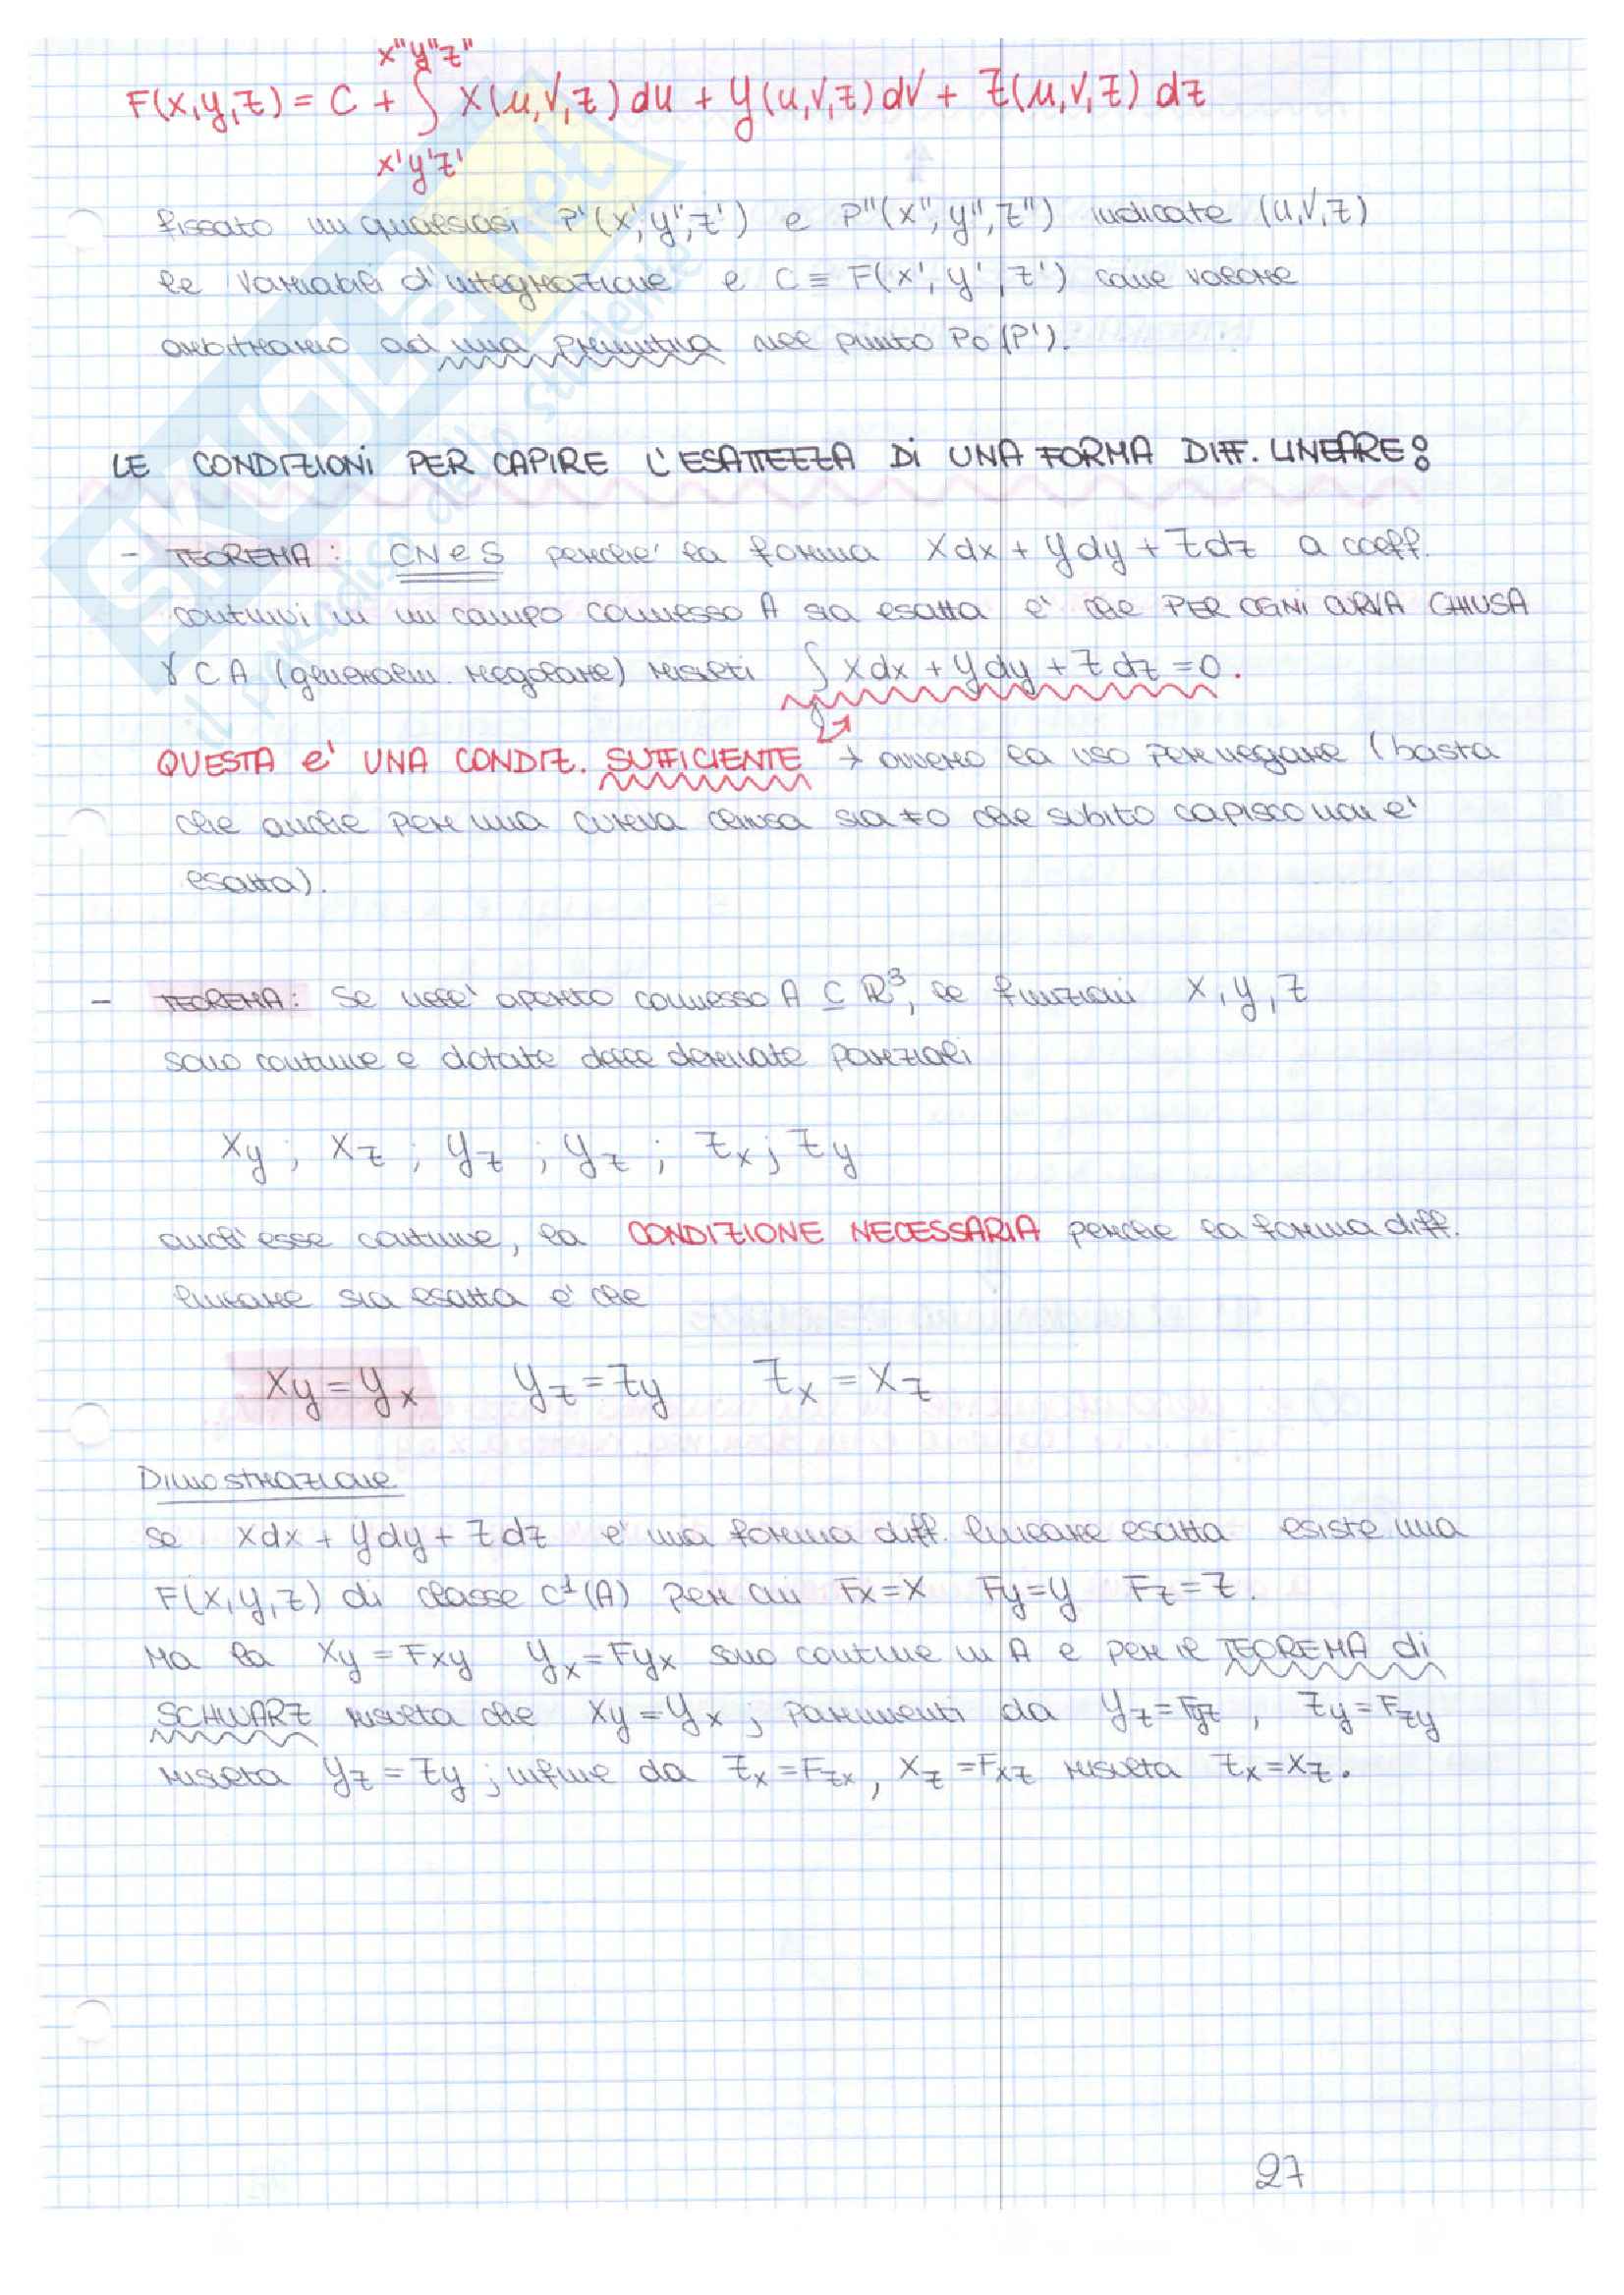 x"y"z"
F(x,y,z) = C + ∫ X(u,v,z) du + Y(u,v,z) dv + Z(u,v,z) dz
x'y'z'
fissato un qualsiasi P'(x',y",z') e P"(x",y",z") indicate (u,v,z)
le variabili d'integrazione e C ≡ F(x',y',z') come valore
arbitrario ad una primitiva nel punto P0 (P').
LE CONDIZIONI PER CAPIRE L'ESATTEZZA Di UNA FORMA DIFF. LINEARE:
- TEOREMA: CNeS perche' la forma Xdx + Ydy + Zdz a coeff.
continui in un campo connesso A sia esatta e' che PER OGNI CURVA CHIUSA
γ ⊂ A (generalm. regolare) risulti ∫ Xdx + Ydy + Zdz = 0.
QUESTA e' UNA CONDIZ. SUFFICIENTE → ovvero la uso per negare (basta
che anche per una curva chiusa sia ≠0 che subito capisco non e'
esatta).
- TEOREMA: Se nell' aperto connesso A ⊆ R³, le funzioni X, Y, Z
sono continue e dotate delle derivate parziali
Xy ; Xz ; Yz ; Yz ; Zx ; Zy
anch'esse continue, la CONDIZIONE NECESSARIA perche la forma diff.
lineare sia esatta e' che
Xy = Yx Yz = Zy Zx = Xz
Dimostrazione
se Xdx + Ydy + Zdz e' una forma diff. lineare esatta esiste una
F(x,y,z) di classe C¹(A) per cui Fx=X Fy=Y Fz=Z.
Ma la Xy = Fxy Yx = Fyx sono continue in A e per il TEOREMA di
SCHWARZ risulta che Xy = Yx ; parimenti da Yz = Fyz , Zy = Fzy
risulta Yz = Zy ; infine da Zx = Fzx , Xz = Fxz risulta Zx = Xz.
27
SKUOLA.net
il paradiso dello studente